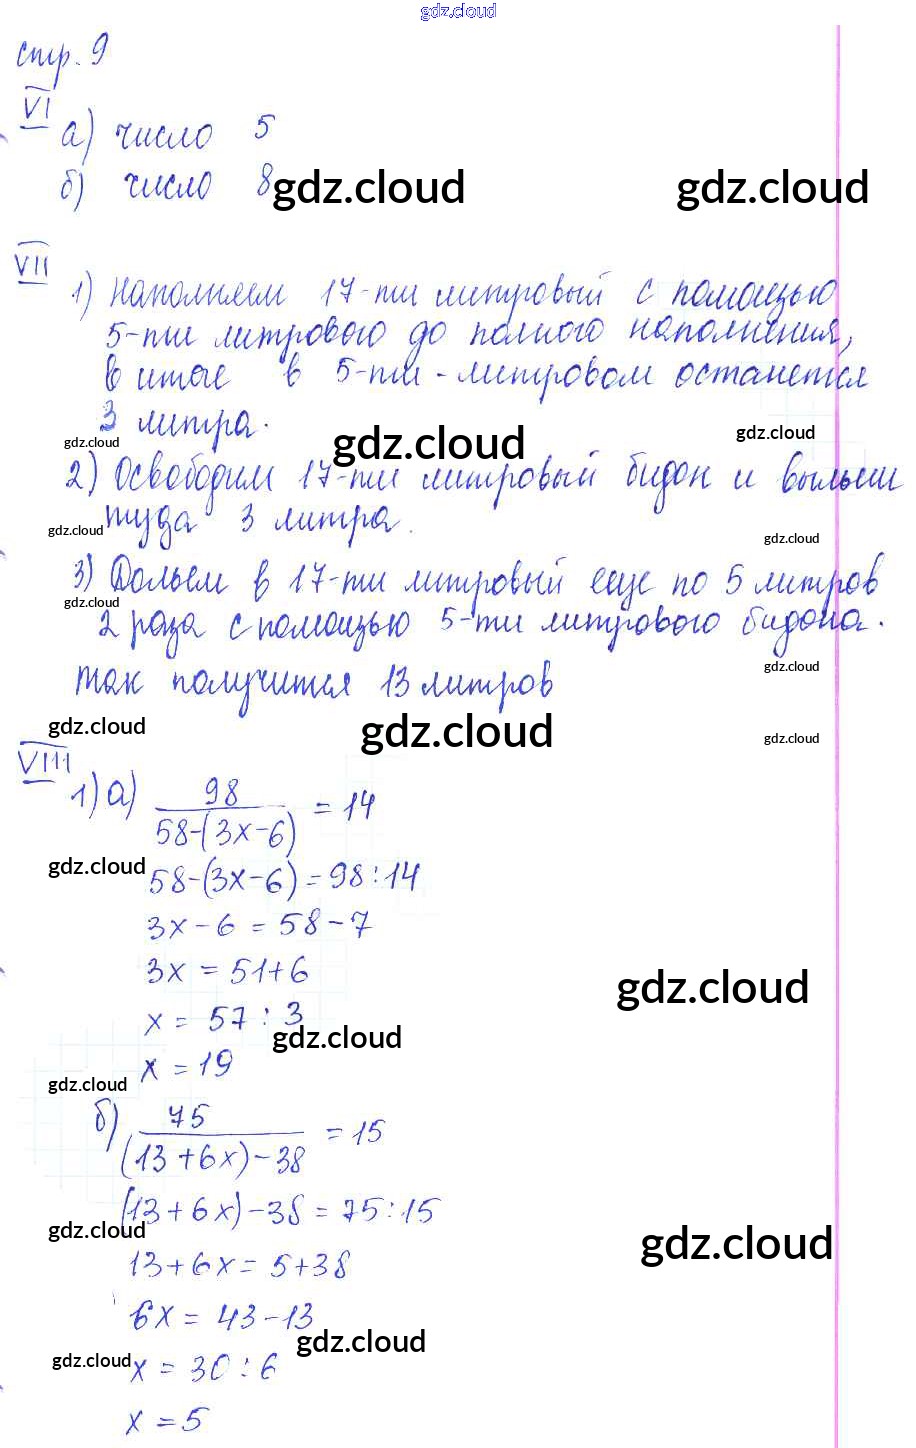 gdz.cloud
стр. 9
VI
а) число 5
б) число 8
gdz.cloud gdz.cloud
VII
1) Наполняем 17-ти литровый с помощью
5-ти литрового до полного наполнения,
в итоге в 5-ти-литровом останется
3 литра.
gdz.cloud gdz.cloud gdz.cloud
2) Освободим 17-ти литровый бидон и выльем
туда 3 литра.
gdz.cloud gdz.cloud
3) Дольем в 17-ти литровый еще по 5 литров
gdz.cloud
2 раза с помощью 5-ти литрового бидона.
gdz.cloud
так получится 13 литров
gdz.cloud gdz.cloud gdz.cloud
VIII
1) а) 98
58-(3x-6) = 14
gdz.cloud
58-(3x-6) = 98:14
3x - 6 = 58 - 7
3x = 51+6
gdz.cloud
x = 57 : 3
gdz.cloud
x = 19
gdz.cloud
б) 75
(13+6x)-38 = 15
(13+6x)-38 = 75:15
gdz.cloud gdz.cloud
13+6x = 5+38
6x = 43-13
gdz.cloud
gdz.cloud
x = 30 : 6
x = 5